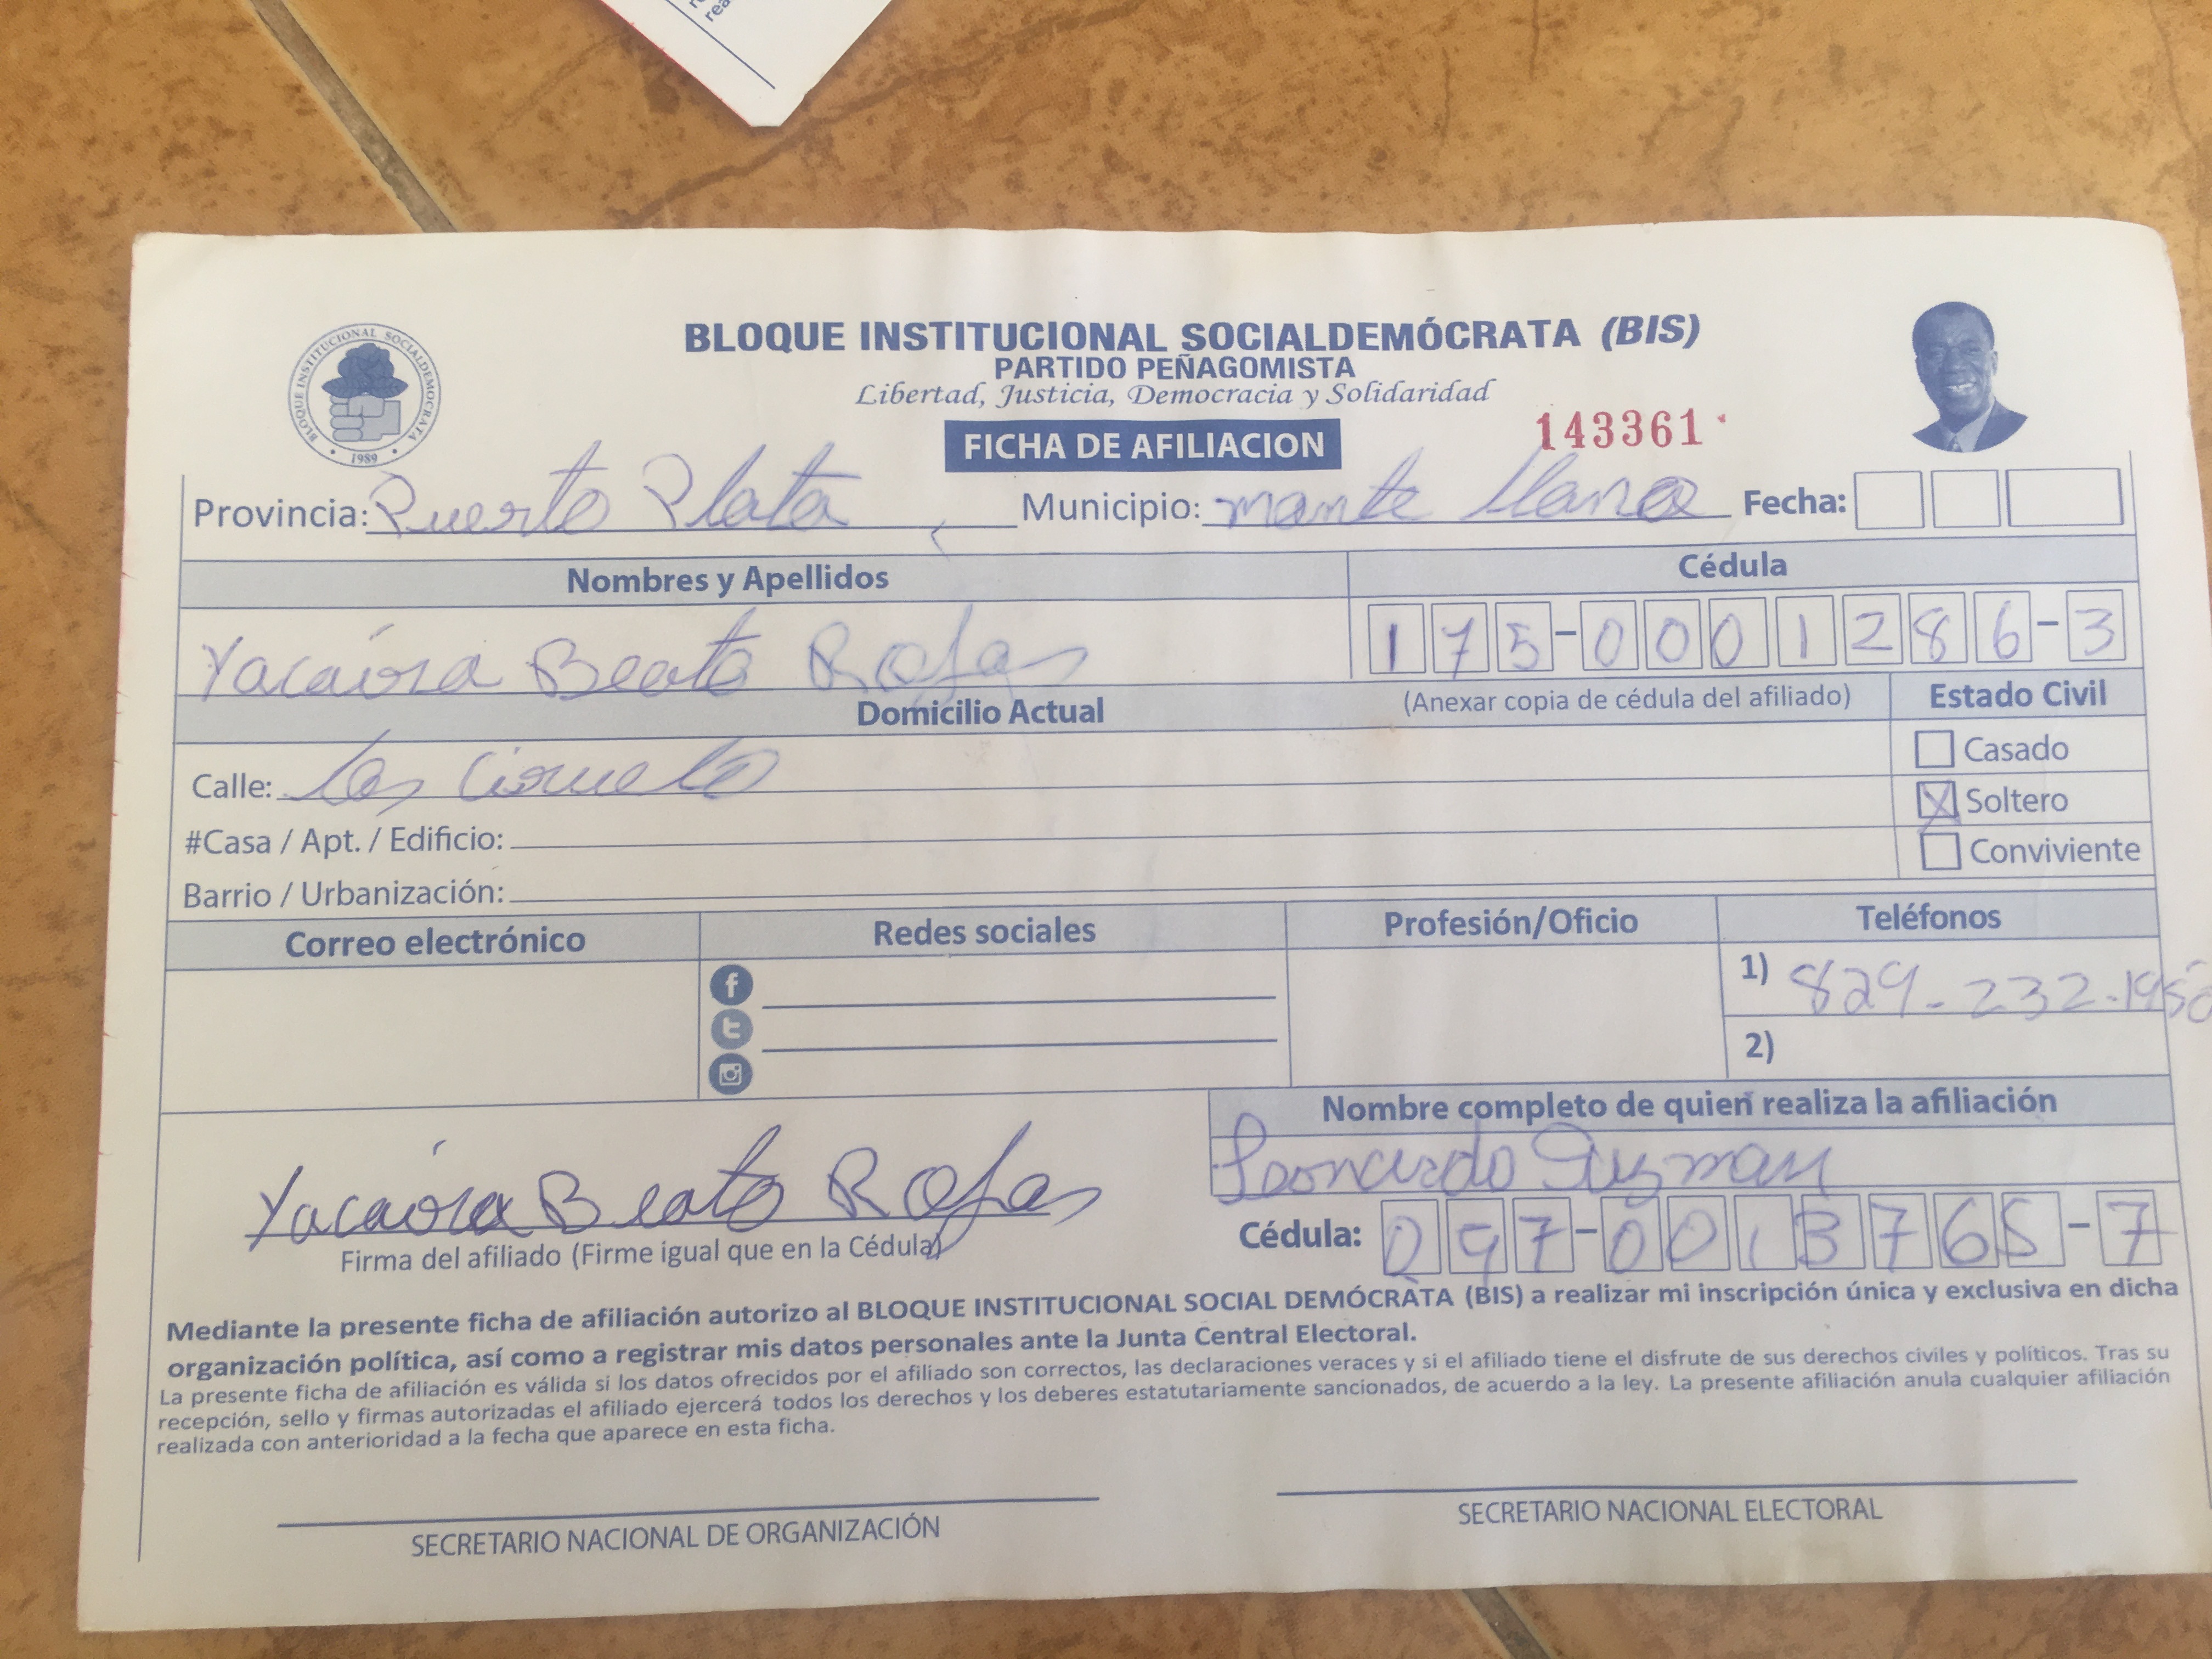 rea
BLOQUE INSTITUCIONAL SOCIALDEMÓCRATA
1989
BLOQUE INSTITUCIONAL SOCIALDEMÓCRATA (BIS)
PARTIDO PEÑAGOMISTA
Libertad, Justicia, Democracia y Solidaridad
FICHA DE AFILIACION
143361
Provincia: Puerto Plata Municipio: monte llano Fecha:
Nombres y Apellidos Cédula
Yacaira Beato Rojas 175-0001286-3
Domicilio Actual (Anexar copia de cédula del afiliado) Estado Civil
Casado
Calle: Los Ciruelo
X Soltero
#Casa / Apt. / Edificio:
Conviviente
Barrio / Urbanización:
Correo electrónico Redes sociales Profesión/Oficio Teléfonos
1) 829-232-1950
2)
Nombre completo de quien realiza la afiliación
Leonardo Guzman
Yacaira Beato Rojas
Cédula: 097-0013765-7
Firma del afiliado (Firme igual que en la Cédula)
Mediante la presente ficha de afiliación autorizo al BLOQUE INSTITUCIONAL SOCIAL DEMÓCRATA (BIS) a realizar mi inscripción única y exclusiva en dicha
organización política, así como a registrar mis datos personales ante la Junta Central Electoral.
La presente ficha de afiliación es válida si los datos ofrecidos por el afiliado son correctos, las declaraciones veraces y si el afiliado tiene el disfrute de sus derechos civiles y políticos. Tras su
recepción, sello y firmas autorizadas el afiliado ejercerá todos los derechos y los deberes estatutariamente sancionados, de acuerdo a la ley. La presente afiliación anula cualquier afiliación
realizada con anterioridad a la fecha que aparece en esta ficha.
SECRETARIO NACIONAL DE ORGANIZACIÓN
SECRETARIO NACIONAL ELECTORAL